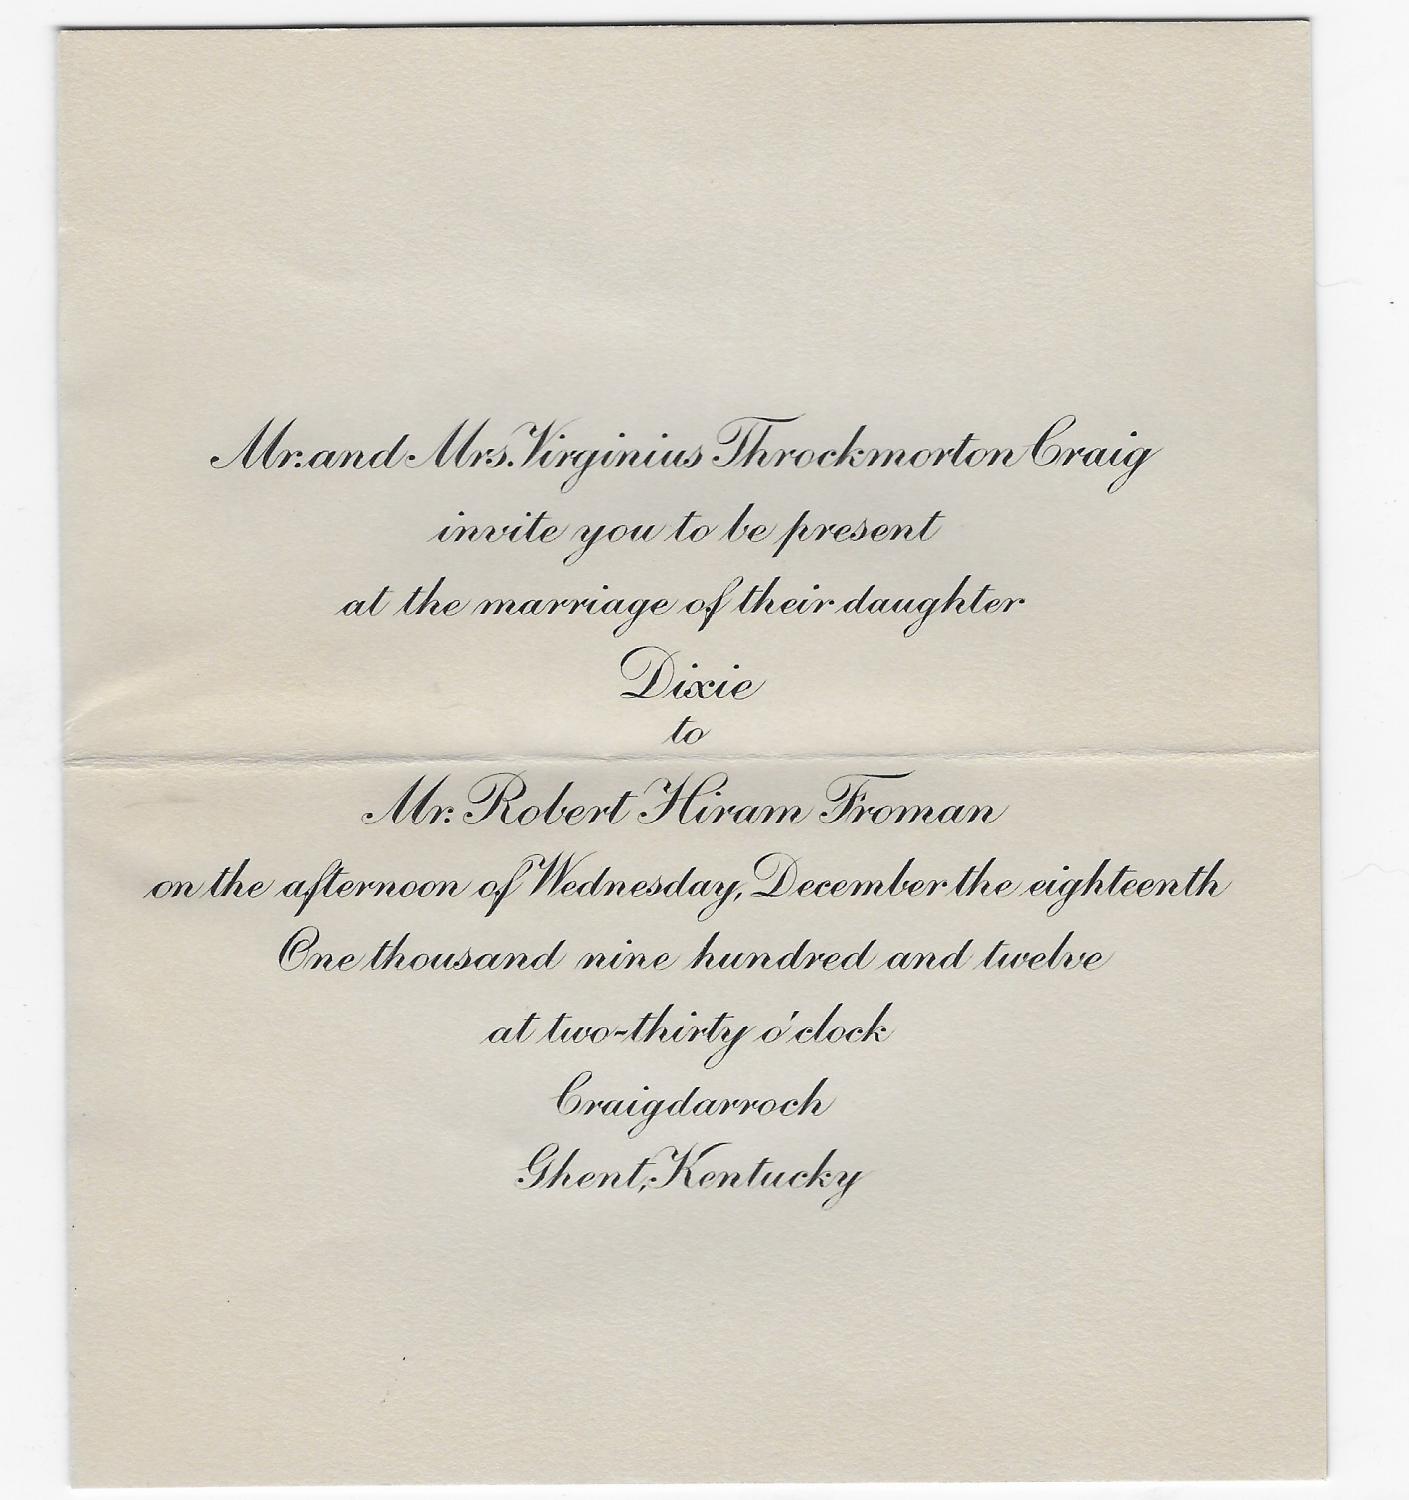 Mr. and Mrs. Virginius Throckmorton Craig
invite you to be present
at the marriage of their daughter
Dixie
to
Mr. Robert Hiram Froman
on the afternoon of Wednesday, December the eighteenth
One thousand nine hundred and twelve
at two-thirty o'clock
Craigdarroch
Ghent, Kentucky